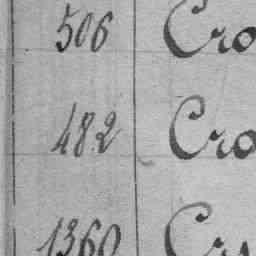 506 Cro
482 Cro
1360 Cry